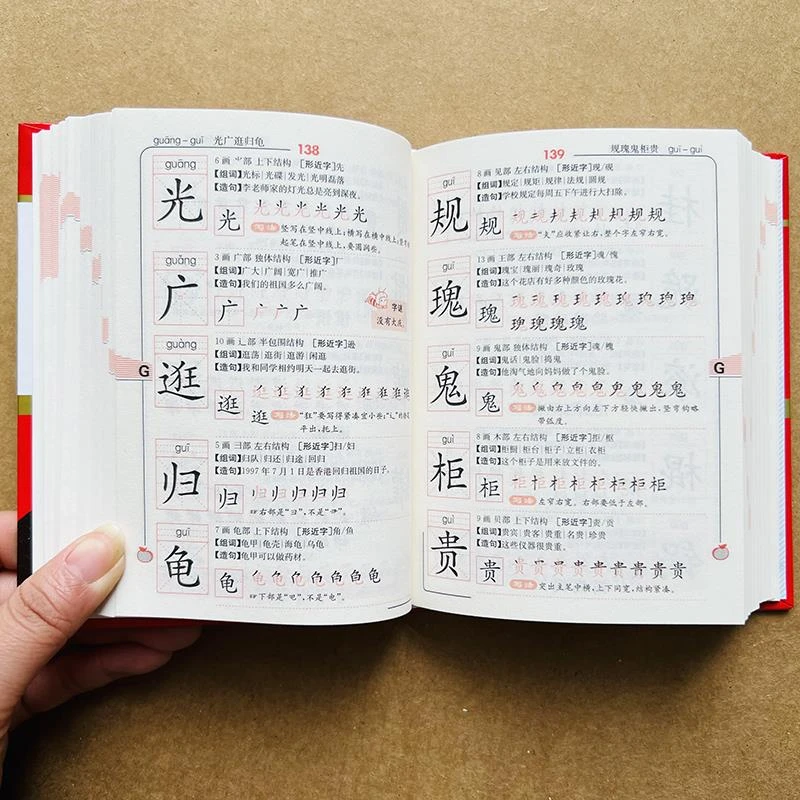 guāng－guī 光广逛归龟
138
guāng
光
6画 ⺌部 上下结构 [形近字]先
【组词】光标|光碟|发光|光明磊落
【造句】李老师家的灯光总是亮到深夜。
光 光光光光光光
写法 竖写在竖中线上;横写在横中线上;
起笔在竖中线上,要圆润些。
guǎng
广
3画 广部 独体结构 [形近字]厂
【组词】广大|广阔|宽广|推广
【造句】我们的祖国多么广阔。
广 广广广
字谜
没有大庆。
guàng
逛
10画 辶部 半包围结构 [形近字]逊
【组词】逛荡|逛街|逛游|闲逛
【造句】我和同学相约明天一起去逛街。
逛 逛逛逛逛逛逛逛逛逛
逛 写法 “狂”要写得紧凑宏小些;“辶”的
平出,托上。
G
guī
归
5画 彐部 左右结构 [形近字]扫/妇
【组词】归队|归还|归途|回归
【造句】1997年7月1日是香港回归祖国的日子。
归 归归归归归
右部是“彐”,不是“彑”。
guī
龟
7画 龟部 上下结构 [形近字]角/鱼
【组词】龟甲|龟壳|海龟|乌龟
【造句】龟甲可以做药材。
龟 龟龟龟龟龟龟龟
下部是“电”,不是“电”。
139
规瑰鬼柜贵 guī－guì
guī
规
8画 见部 左右结构 [形近字]现/砚
【组词】规定|规矩|规律|法规|圆规
【造句】学校规定每周五下午进行大扫除。
规 规规规规规规规规
写法 “夫”应收紧让右,整个字左窄右宽。
guī
瑰
13画 王部 左右结构 [形近字]魂/愧
【组词】瑰宝|瑰丽|瑰奇|玫瑰
【造句】这个花店有好多种颜色的玫瑰花。
瑰 瑰瑰瑰瑰瑰瑰瑰瑰瑰
瑰瑰瑰瑰
guǐ
鬼
9画 鬼部 独体结构 [形近字]魂/槐
【组词】鬼话|鬼脸|捣鬼
【造句】他淘气地向妈妈做了个鬼脸。
鬼 鬼鬼鬼鬼鬼鬼鬼鬼鬼
写法 撇由右上方向左下方轻快撇出,竖弯钩略
带弧度。
G
guì
柜
8画 木部 左右结构 [形近字]拒/枢
【组词】柜橱|柜台|柜子|立柜|衣柜
【造句】这个柜子是用来放文件的。
柜 柜柜柜柜柜柜柜柜
写法 左窄右宽。右部要低于左部。
guì
贵
9画 贝部 上下结构 [形近字]责/贡
【组词】贵宾|贵客|贵重|名贵|珍贵
【造句】这些仪器很贵重。
贵 贵贵贵贵贵贵贵贵贵
写法 突出主笔中横,上下同宽,结构紧凑。